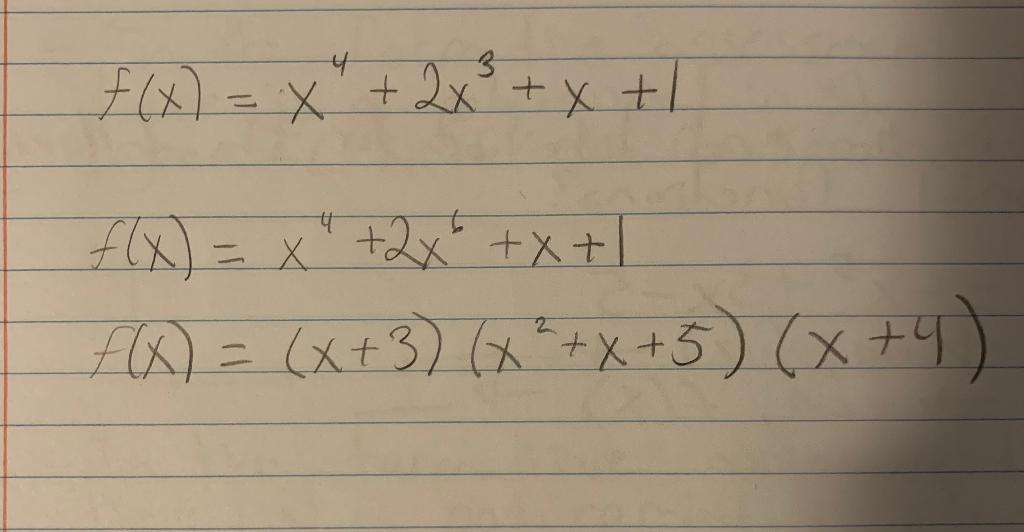 f(x) = x⁴ + 2x³ + x + 1
f(x) = x⁴ + 2x⁶ + x + 1
f(x) = (x + 3) (x² + x + 5) (x + 4)